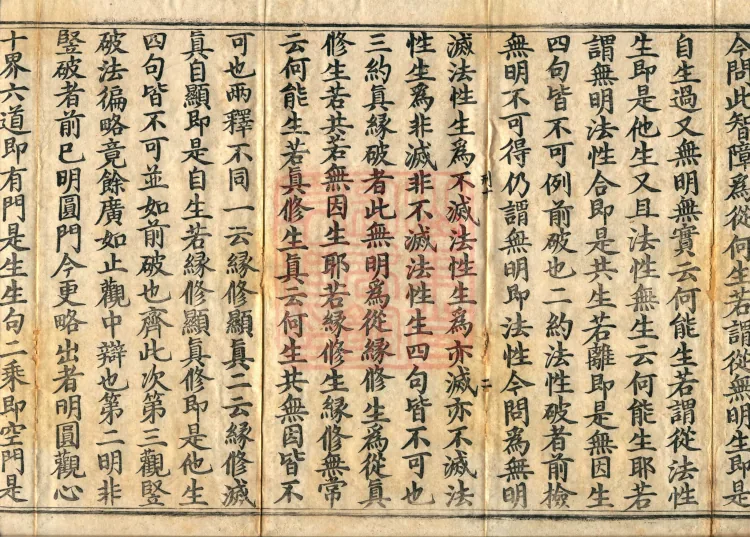 今問此智障為從何生若謂從無明生即是
自生過又無明無實云何能生若謂從法性
生即是他生又且法性無生云何能生耶若
謂無明法性合即是共生若離即是無因生
四句皆不可例前破也二約法性破者前檢
無明不可得仍謂無明即法性今問為無明
滅法性生為不滅法性生為亦滅亦不滅法
性生為非滅非不滅法性生四句皆不可也
三約真緣破者此無明為從緣修生為從真
修生若共若無因生耶若緣修生緣修無常
云何能生若真修生真云何生共無因皆不
可也兩釋不同一云緣修顯真二云緣修滅
真自顯即是自生若緣修顯真修即是他生
四句皆不可並如前破也齊此次第三觀豎
破法徧略竟餘廣如止觀中辯也第二明非
豎破者前已明圓門今更略出者明圓觀心
十界六道即有門是生生句二乘即空門是